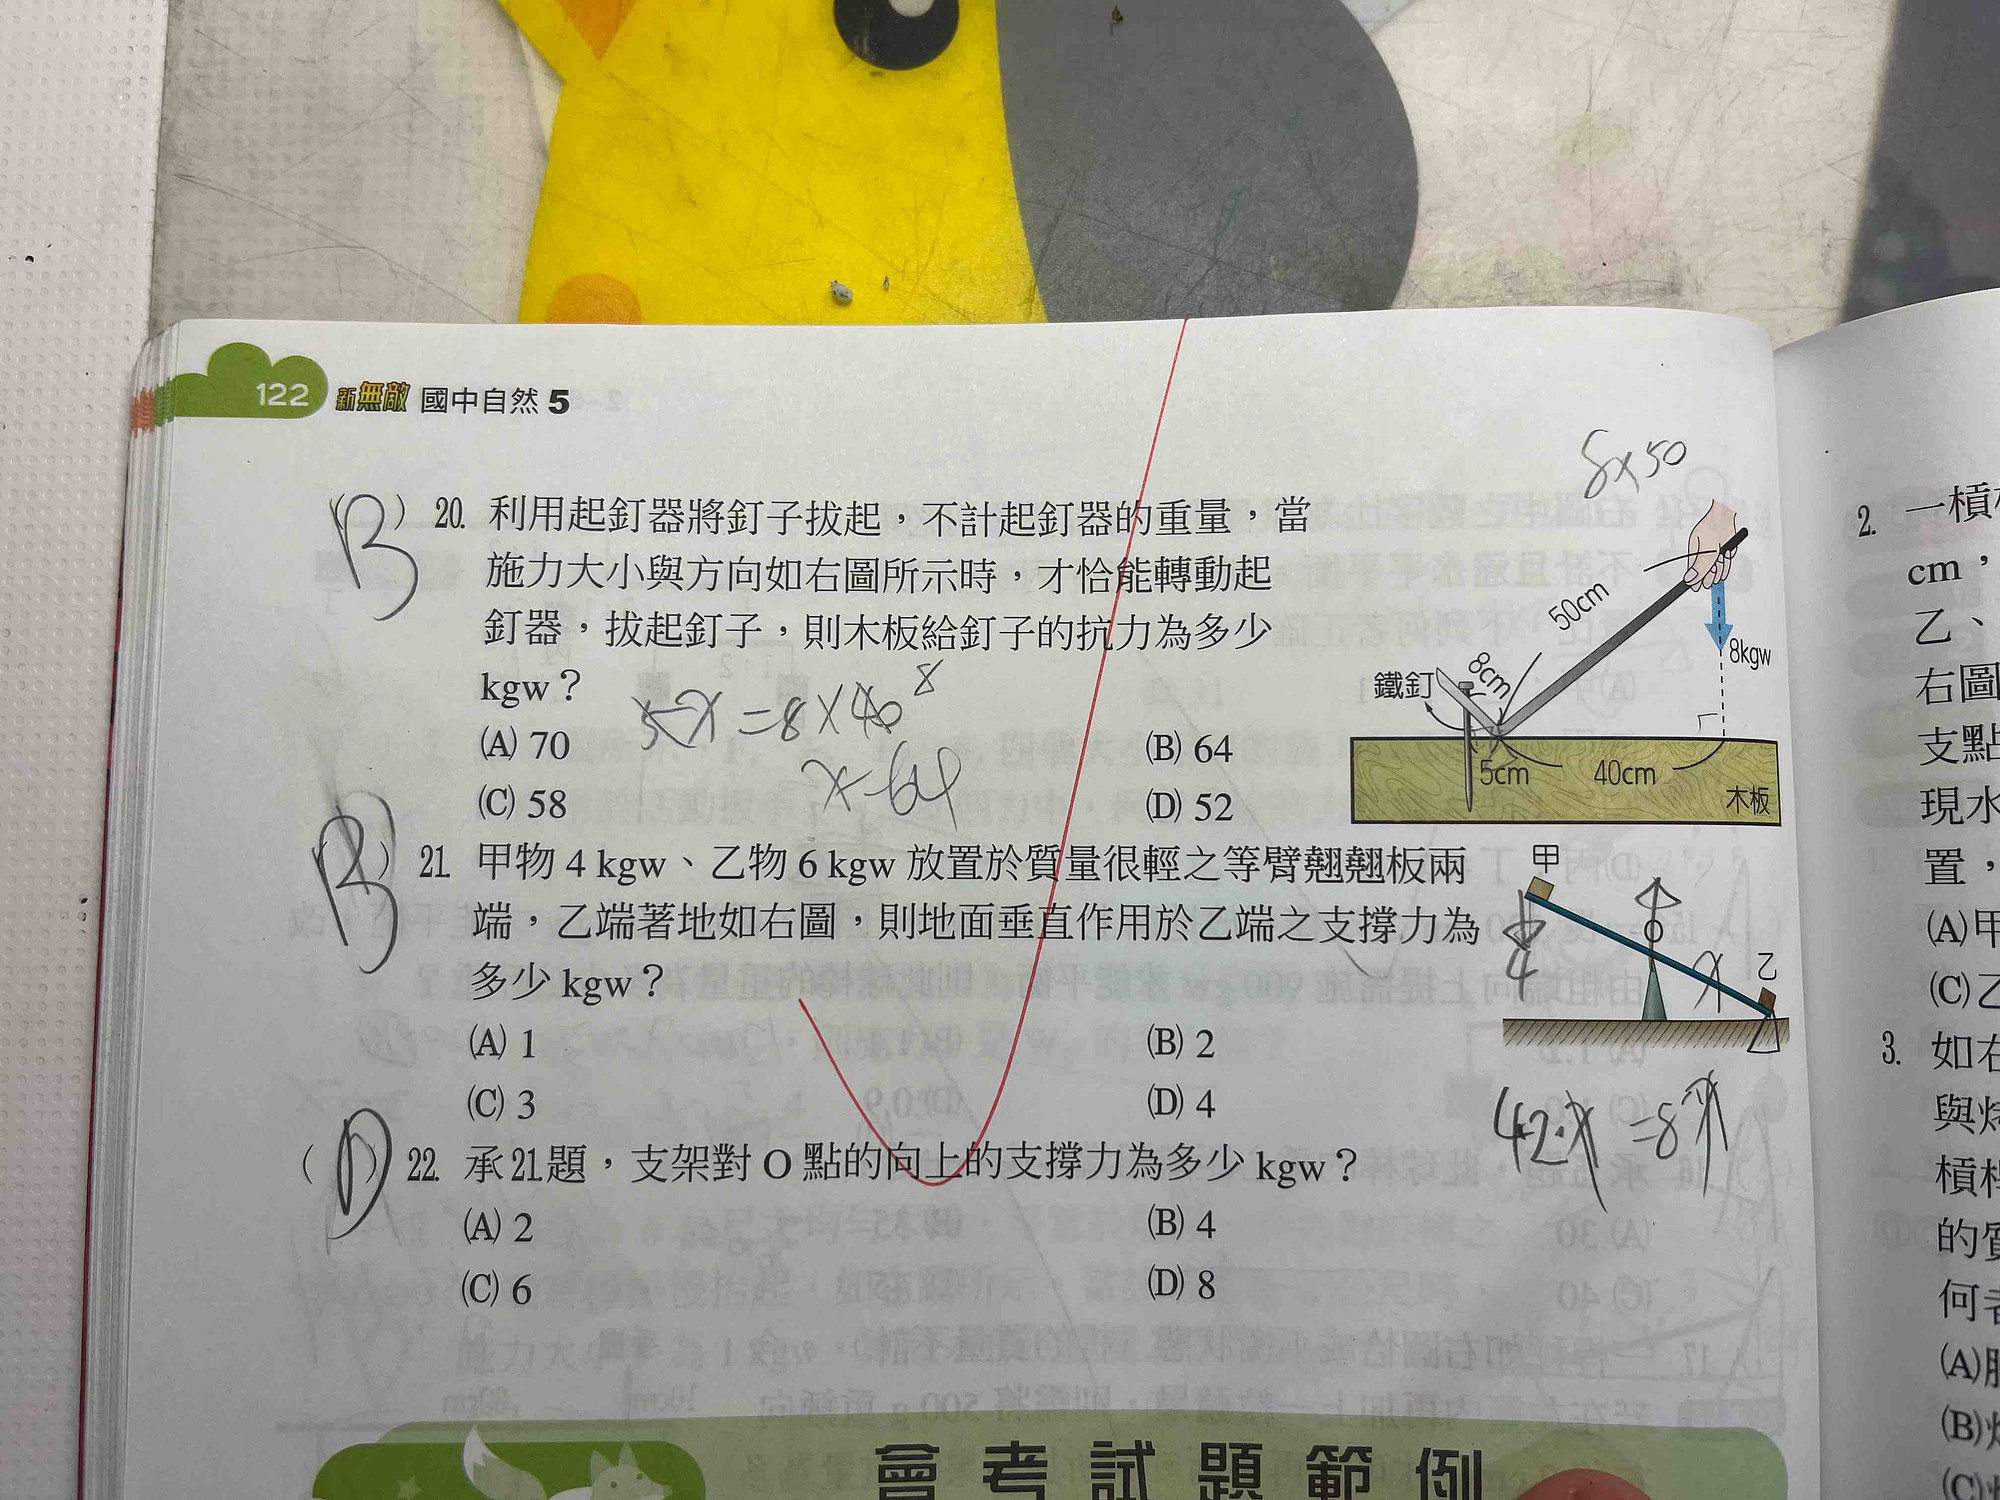 122 新無敵 國中自然 5
8x50
(B) 20. 利用起釘器將釘子拔起,不計起釘器的重量,當
施力大小與方向如右圖所示時,才恰能轉動起
釘器,拔起釘子,則木板給釘子的抗力為多少
kgw?
(A) 70
(B) 64
(C) 58
(D) 52
x=64
50cm
8kgw
8cm
鐵釘
5cm
40cm
木板
(B) 21. 甲物 4 kgw、乙物 6 kgw 放置於質量很輕之等臂翹翹板兩
端,乙端著地如右圖,則地面垂直作用於乙端之支撐力為
多少 kgw?
(A) 1
(B) 2
(C) 3
(D) 4
甲
O
乙
4
x
(D) 22. 承21.題,支架對 O 點的向上的支撐力為多少 kgw?
(A) 2
(B) 4
(C) 6
(D) 8
會考試題範例
2.
cm,
乙、
右圖
支點
現水
置,
(A)甲
(C)乙
3. 如右
與烤
槓桿
的質
何者
(A)
(B)
(C)